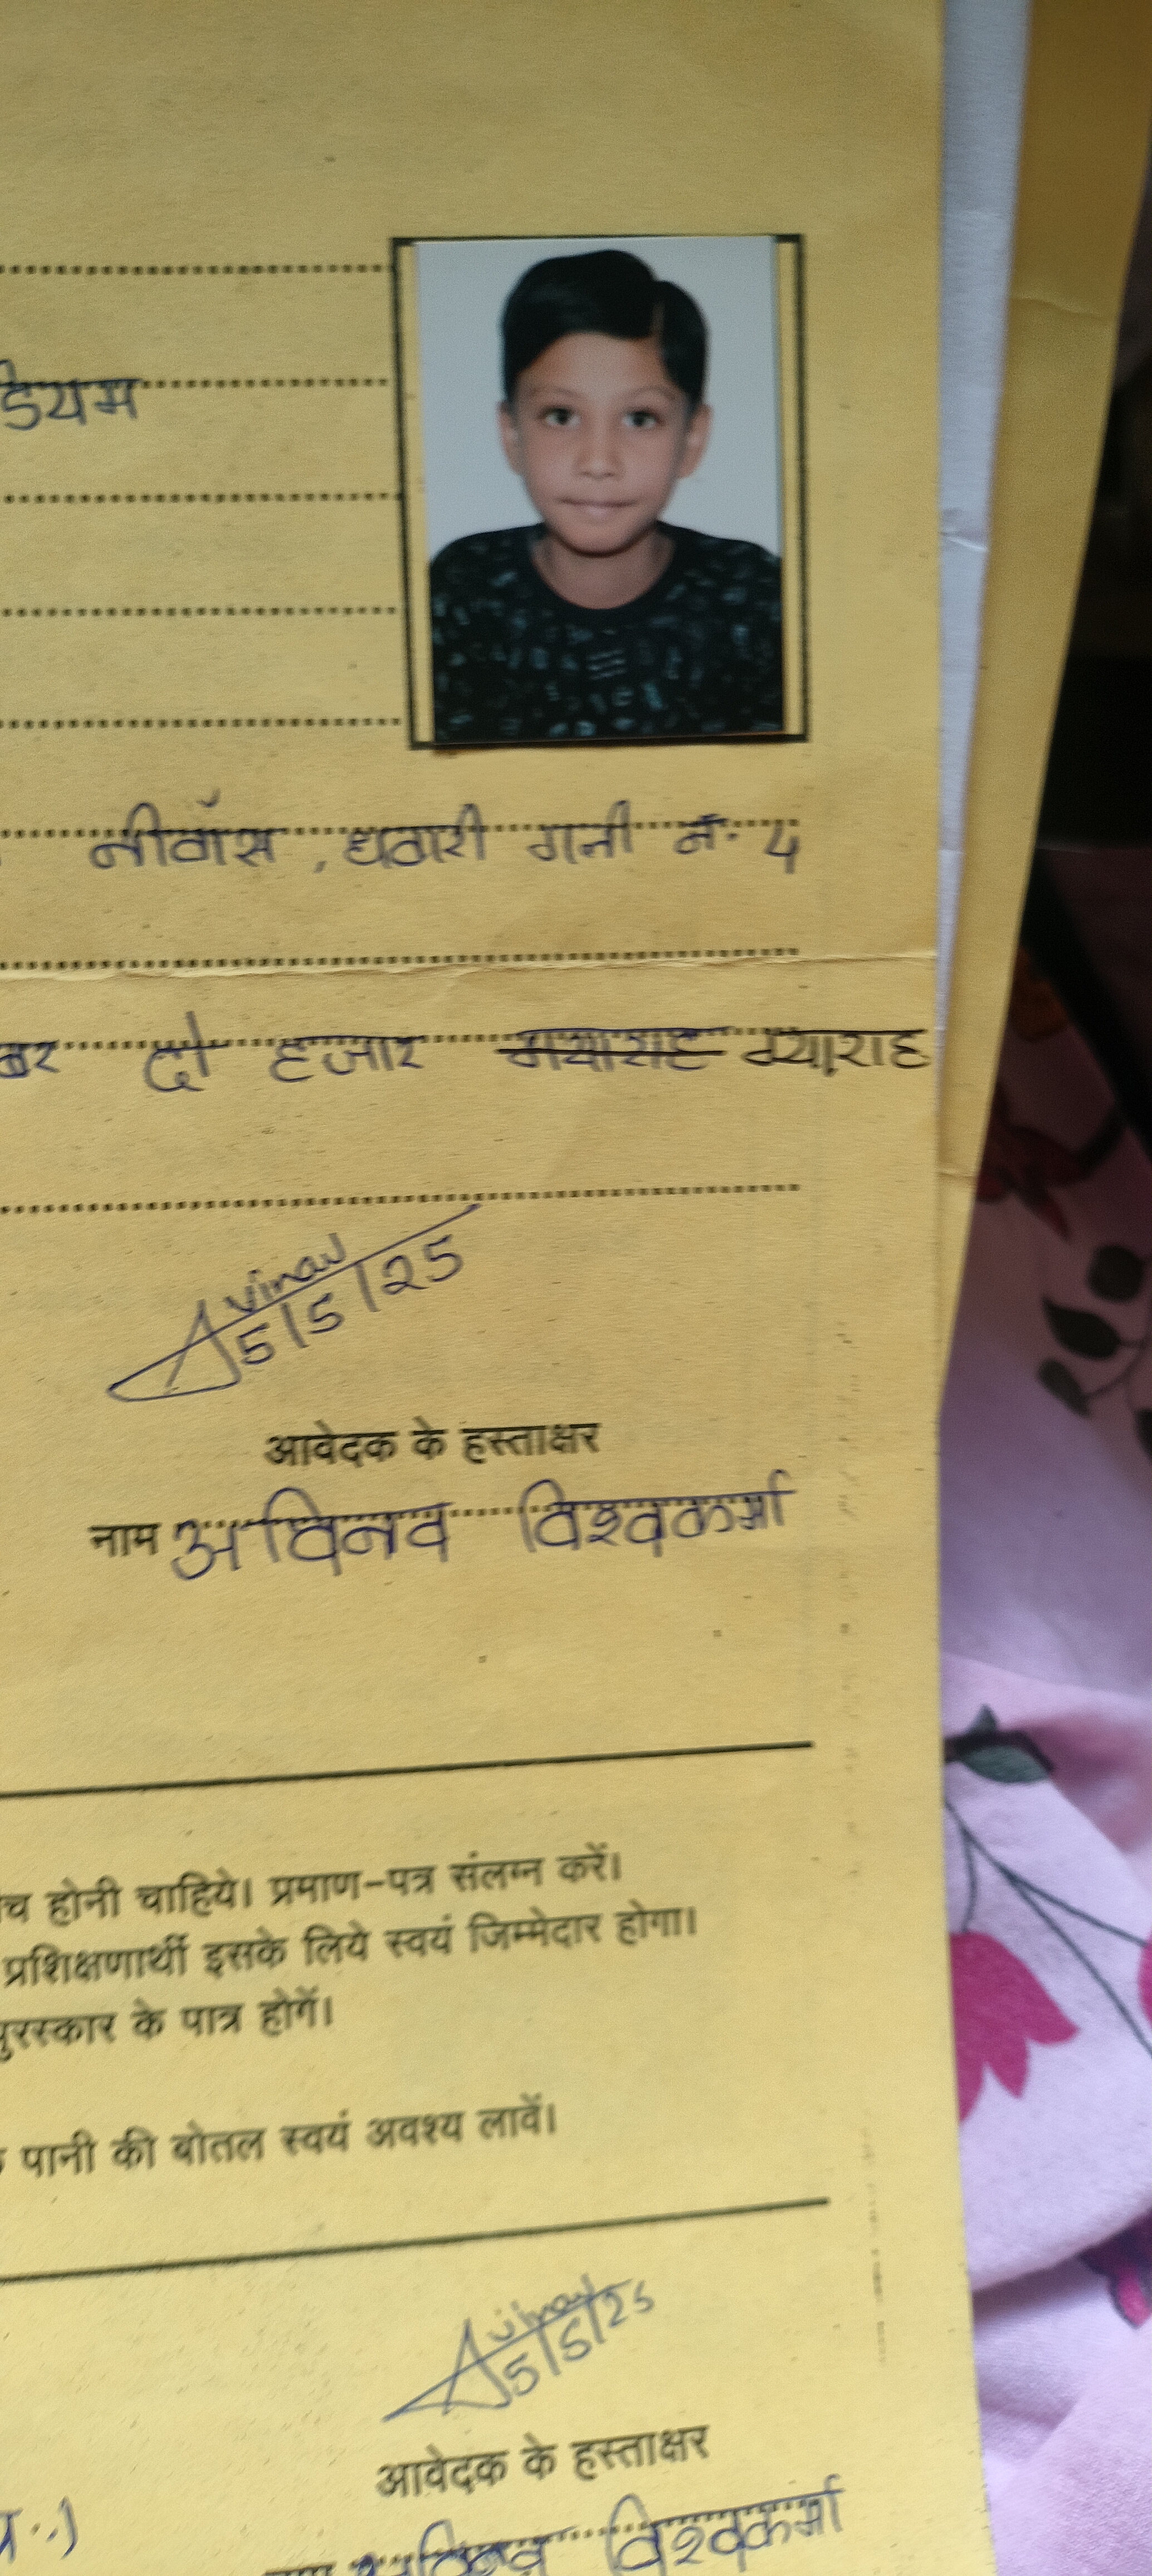 डियम
नीवॉस , धवारी गली नं. 4
बर दो हजार ग्याराह
Avinav
5/5/25
आवेदक के हस्ताक्षर
नाम अविनव विश्वकर्मा
च होनी चाहिये। प्रमाण-पत्र संलग्न करें।
प्रशिक्षणार्थी इसके लिये स्वयं जिम्मेदार होगा।
पुरस्कार के पात्र होगें।
पानी की बोतल स्वयं अवश्य लावें।
Avinav
5/5/25
आवेदक के हस्ताक्षर
अविनव विश्वकर्मा